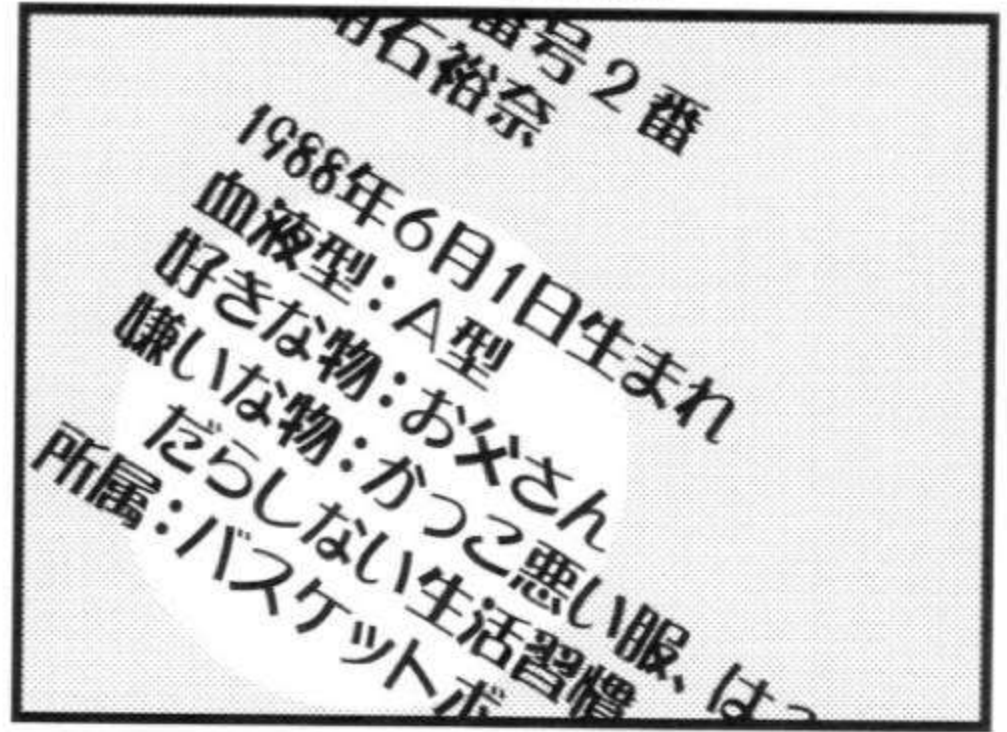 番号2番
明石裕奈
1988年6月1日生まれ
血液型：A型
好きな物：お父さん
嫌いな物：かっこ悪い服、はっ
だらしない生活習慣
所属：バスケットボ